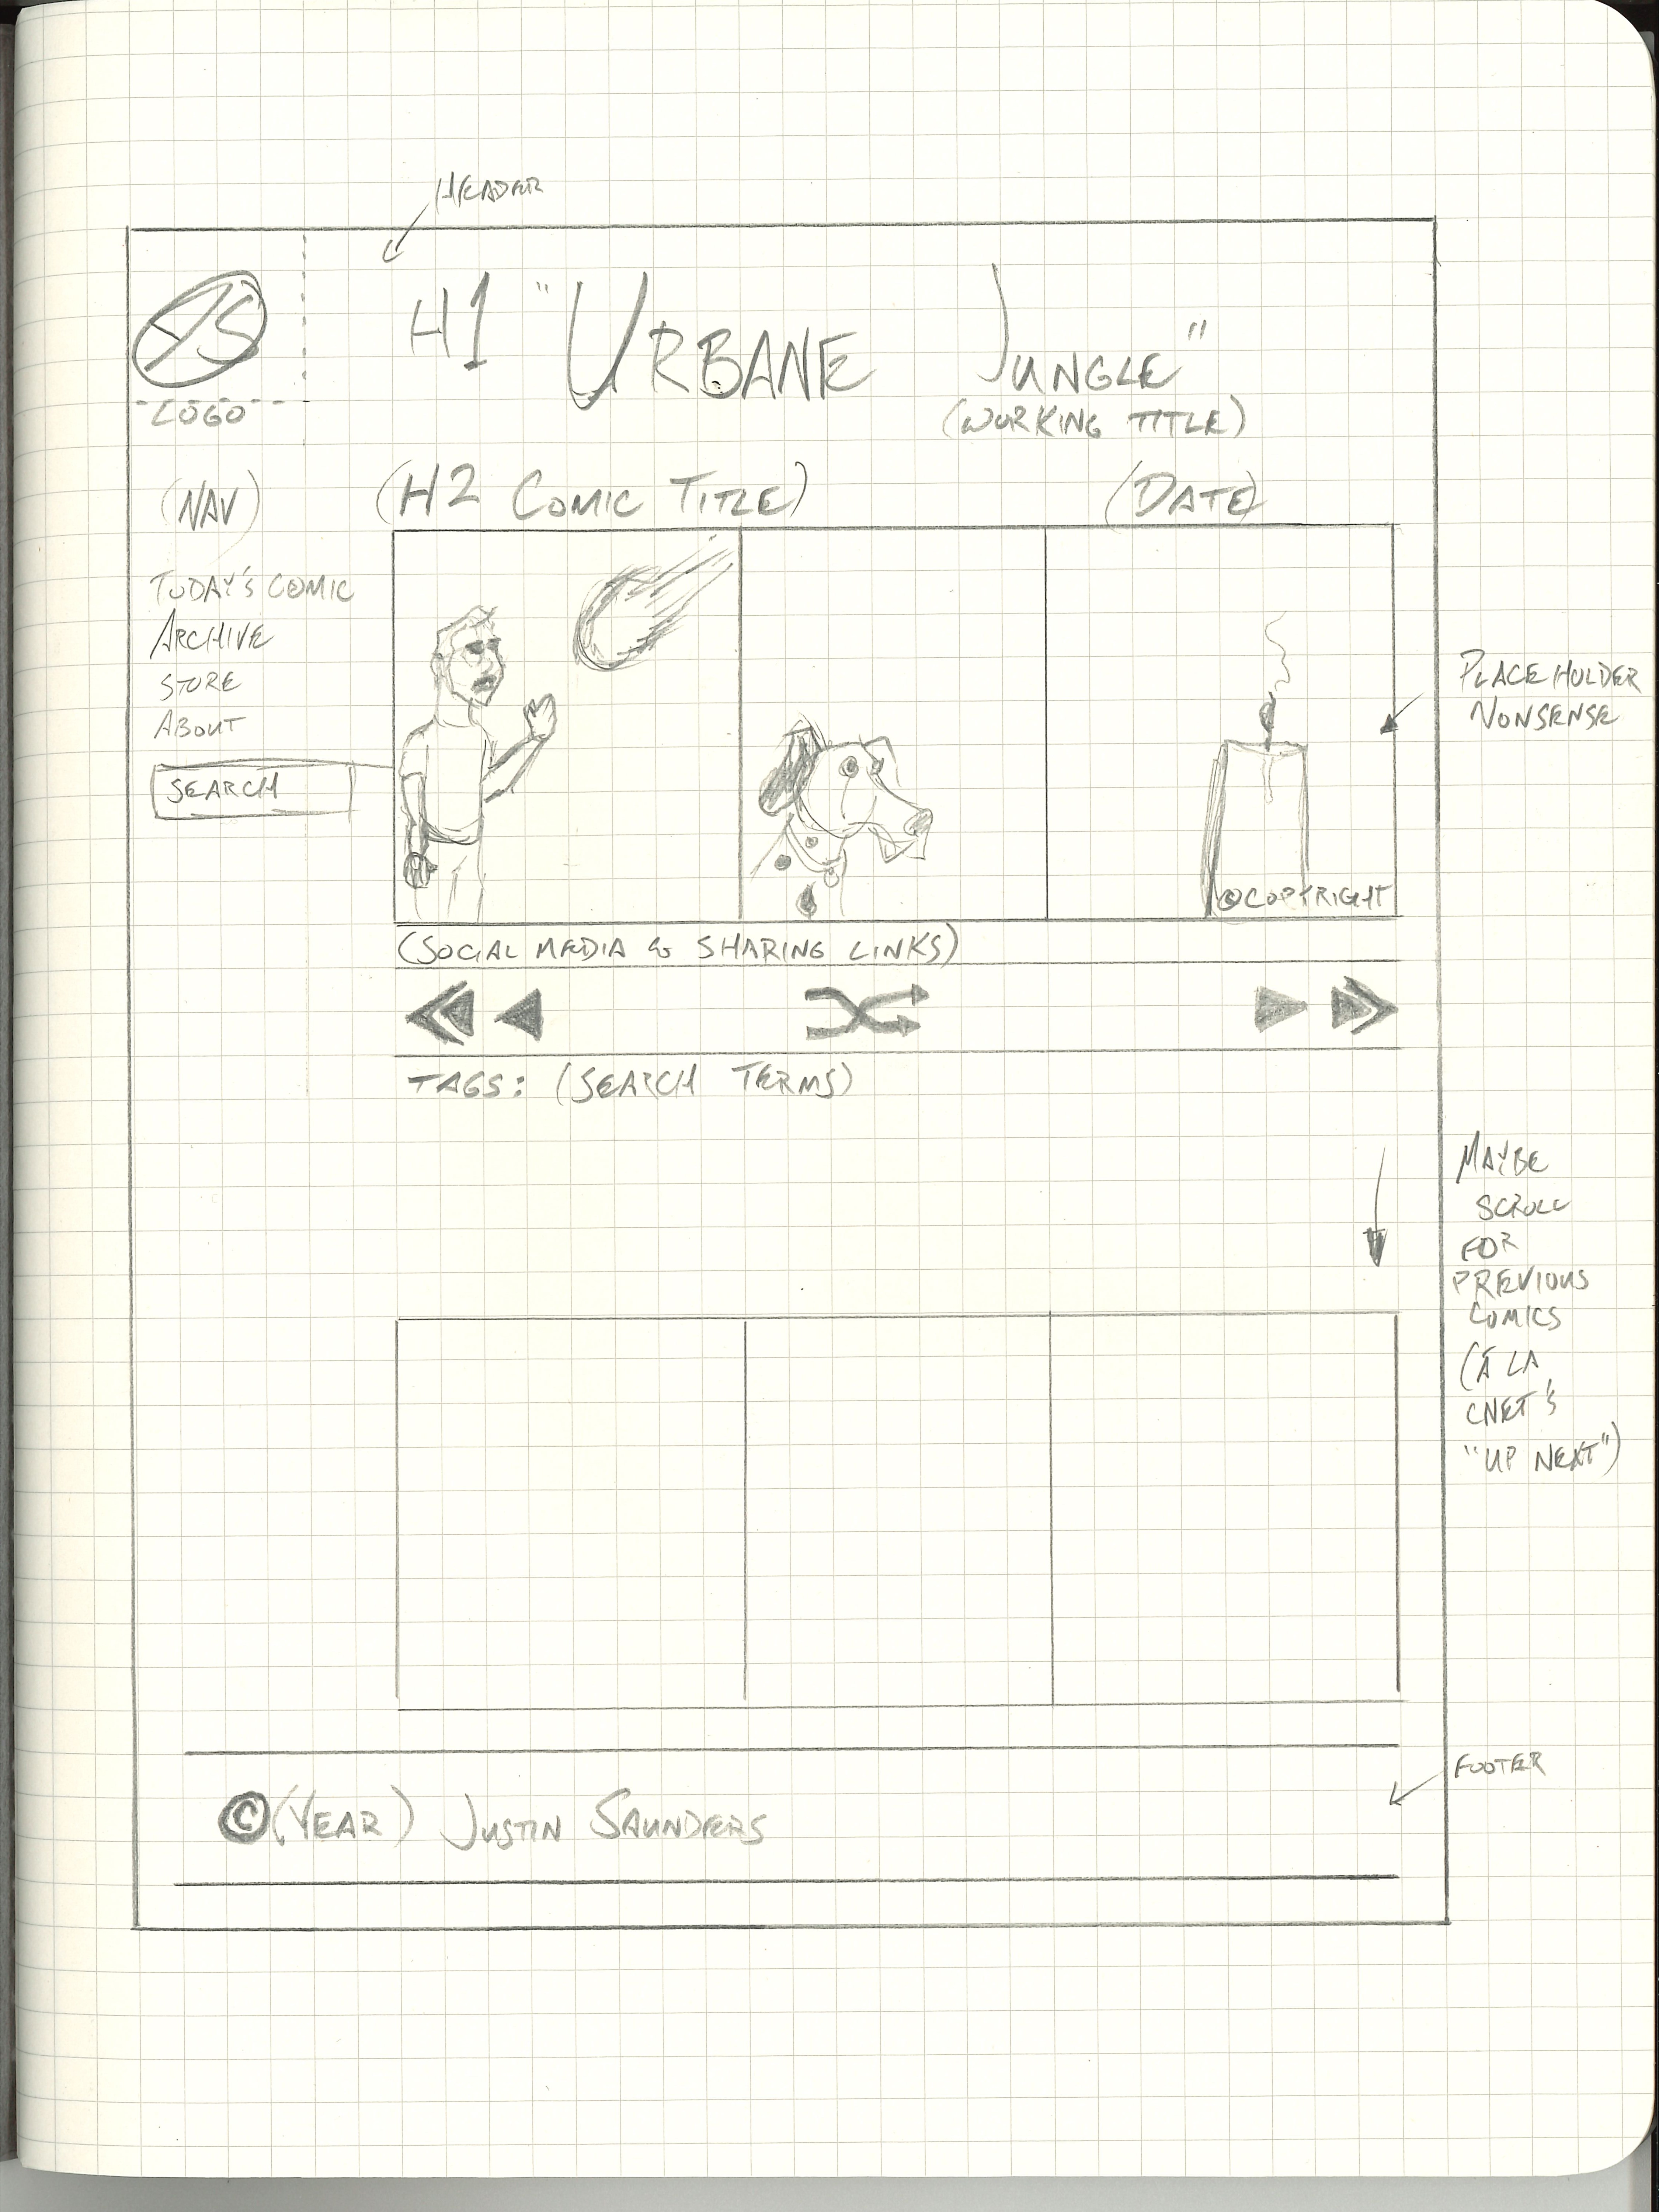 HEADER
H1 "URBANE JUNGLE"
(WORKING TITLE)
LOGO
(NAV)
(H2 COMIC TITLE)
(DATE)
TODAY'S COMIC
ARCHIVE
STORE
ABOUT
SEARCH
PLACEHOLDER
NONSENSE
©COPYRIGHT
(SOCIAL MEDIA & SHARING LINKS)
TAGS: (SEARCH TERMS)
MAYBE
SCROLL
FOR
PREVIOUS
COMICS
(Á LA
CNET'S
"UP NEXT")
FOOTER
©(YEAR) JUSTIN SAUNDERS